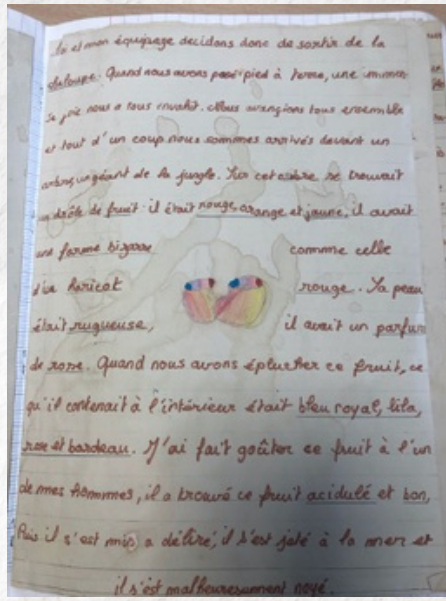 Moi et mon équipage decidons donc de sortir de la
chaloupe. Quand nous avons posé pied à terre, une immen
se joie nous a tous invahit. Nous avançions tous ensemble
et tout d'un coup nous sommes arrivés devant un
arbre, un géant de la jungle. Sur cet arbre se trouvait
un drôle de fruit: il était rouge, orange et jaune, il avait
une forme bizarre comme celle
d'un haricot rouge. Sa peau
était rugueuse, il avait un parfum
de rose. Quand nous avons éplucher ce fruit, ce
qu'il contenait à l'intérieur était bleu royal, lila,
rose et bordeau. J'ai fait goûter ce fruit à l'un
de mes hommmes, il a trouvé ce fruit acidulé et bon,
Puis il s'est mis a déliré, il s'est jeté à la mer et
il s'est malheuresement noyé.